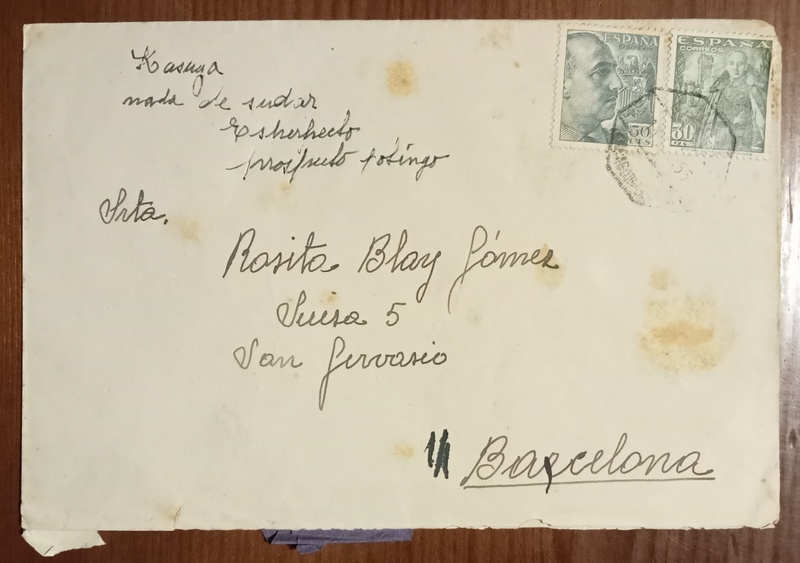 Kasuga
nada de sudar
Esherhecto
prospecto potingo
Srta.
Rosita Blay Gómez
Suisa 5
San Gervasio
Barcelona
ESPAÑA
CORREOS
50
CTS
ESPAÑA
CORREOS
30
CTS